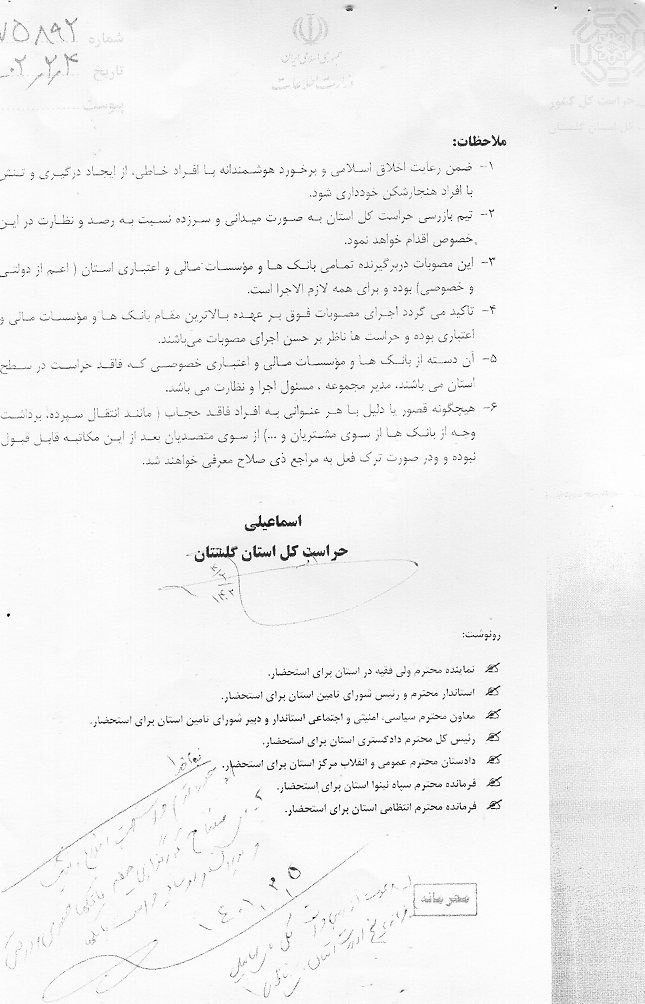 شماره ۷۵۸۹۲
تاریخ
پیوست
جمهوری اسلامی ایران
وزارت اطلاعات
حراست کل کشور
کل استان گلستان
ملاحظات:
۱- ضمن رعایت اخلاق اسلامی و برخورد هوشمندانه با افراد خاطی، از ایجاد درگیری و تنش
با افراد هنجارشکن خودداری شود.
۲- تیم بازرسی حراست کل استان به صورت میدانی و سرزده نسبت به رصد و نظارت در این
خصوص اقدام خواهد نمود.
۳- این مصوبات دربرگیرنده تمامی بانک ها و مؤسسات مالی و اعتباری استان ( اعم از دولتی
و خصوصی) بوده و برای همه لازم الاجرا است.
۴- تاکید می گردد اجرای مصوبات فوق بر عهده بالاترین مقام بانک ها و مؤسسات مالی و
اعتباری بوده و حراست ها ناظر بر حسن اجرای مصوبات می‌باشند.
۵- آن دسته از بانک ها و مؤسسات مالی و اعتباری خصوصی که فاقد حراست در سطح
استان می باشند، مدیر مجموعه ، مسئول اجرا و نظارت می باشد.
۶- هیچگونه قصور یا دلیل با هر عنوانی به افراد فاقد حجاب ( مانند انتقال سپرده، برداشت
وجه از بانک ها از سوی مشتریان و ...) از سوی متصدیان بعد از این مکاتبه قابل قبول
نبوده و ودر صورت ترک فعل به مراجع ذی صلاح معرفی خواهند شد.
اسماعیلی
حراست کل استان گلستان
رونوشت:
نماینده محترم ولی فقیه در استان برای استحضار.
استاندار محترم و رئیس شورای تامین استان برای استحضار.
معاون محترم سیاسی، امنیتی و اجتماعی استاندار و دبیر شورای تامین استان برای استحضار.
رئیس کل محترم دادگستری استان برای استحضار.
دادستان محترم عمومی و انقلاب مرکز استان برای استحضار.
فرمانده محترم سپاه نینوا استان برای استحضار.
فرمانده محترم انتظامی استان برای استحضار.
محرمانه